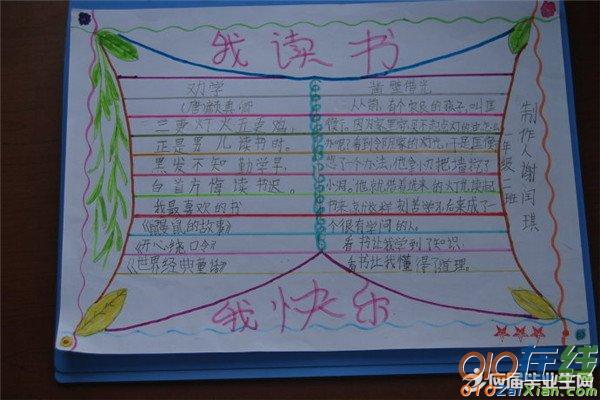 我读书
劝学
（唐颜真卿
三更灯火五更鸡，
正是男儿读书时。
黑发不知勤学早，
白首方悔读书迟。
我最喜欢的书
《鼹鼠的故事》
《开心绕口令》
《世界经典童话》
凿壁借光
从前，有个农民的孩子，叫匡
衡了。因为家里穷买不起点灯的油怎么
办呢？看到邻居家的灯光，于是匡衡
想了个办法，他拿小刀把墙凿了
小洞。他就借着过来的灯光读起
书来，他这样刻苦学后来成了一
个很有学问的人。
看书让我学到了知识
看书让我懂得了道理。
制作人谢闰琪
一年级二班
我快乐
010在线
010zaixian.com
应届毕业生网